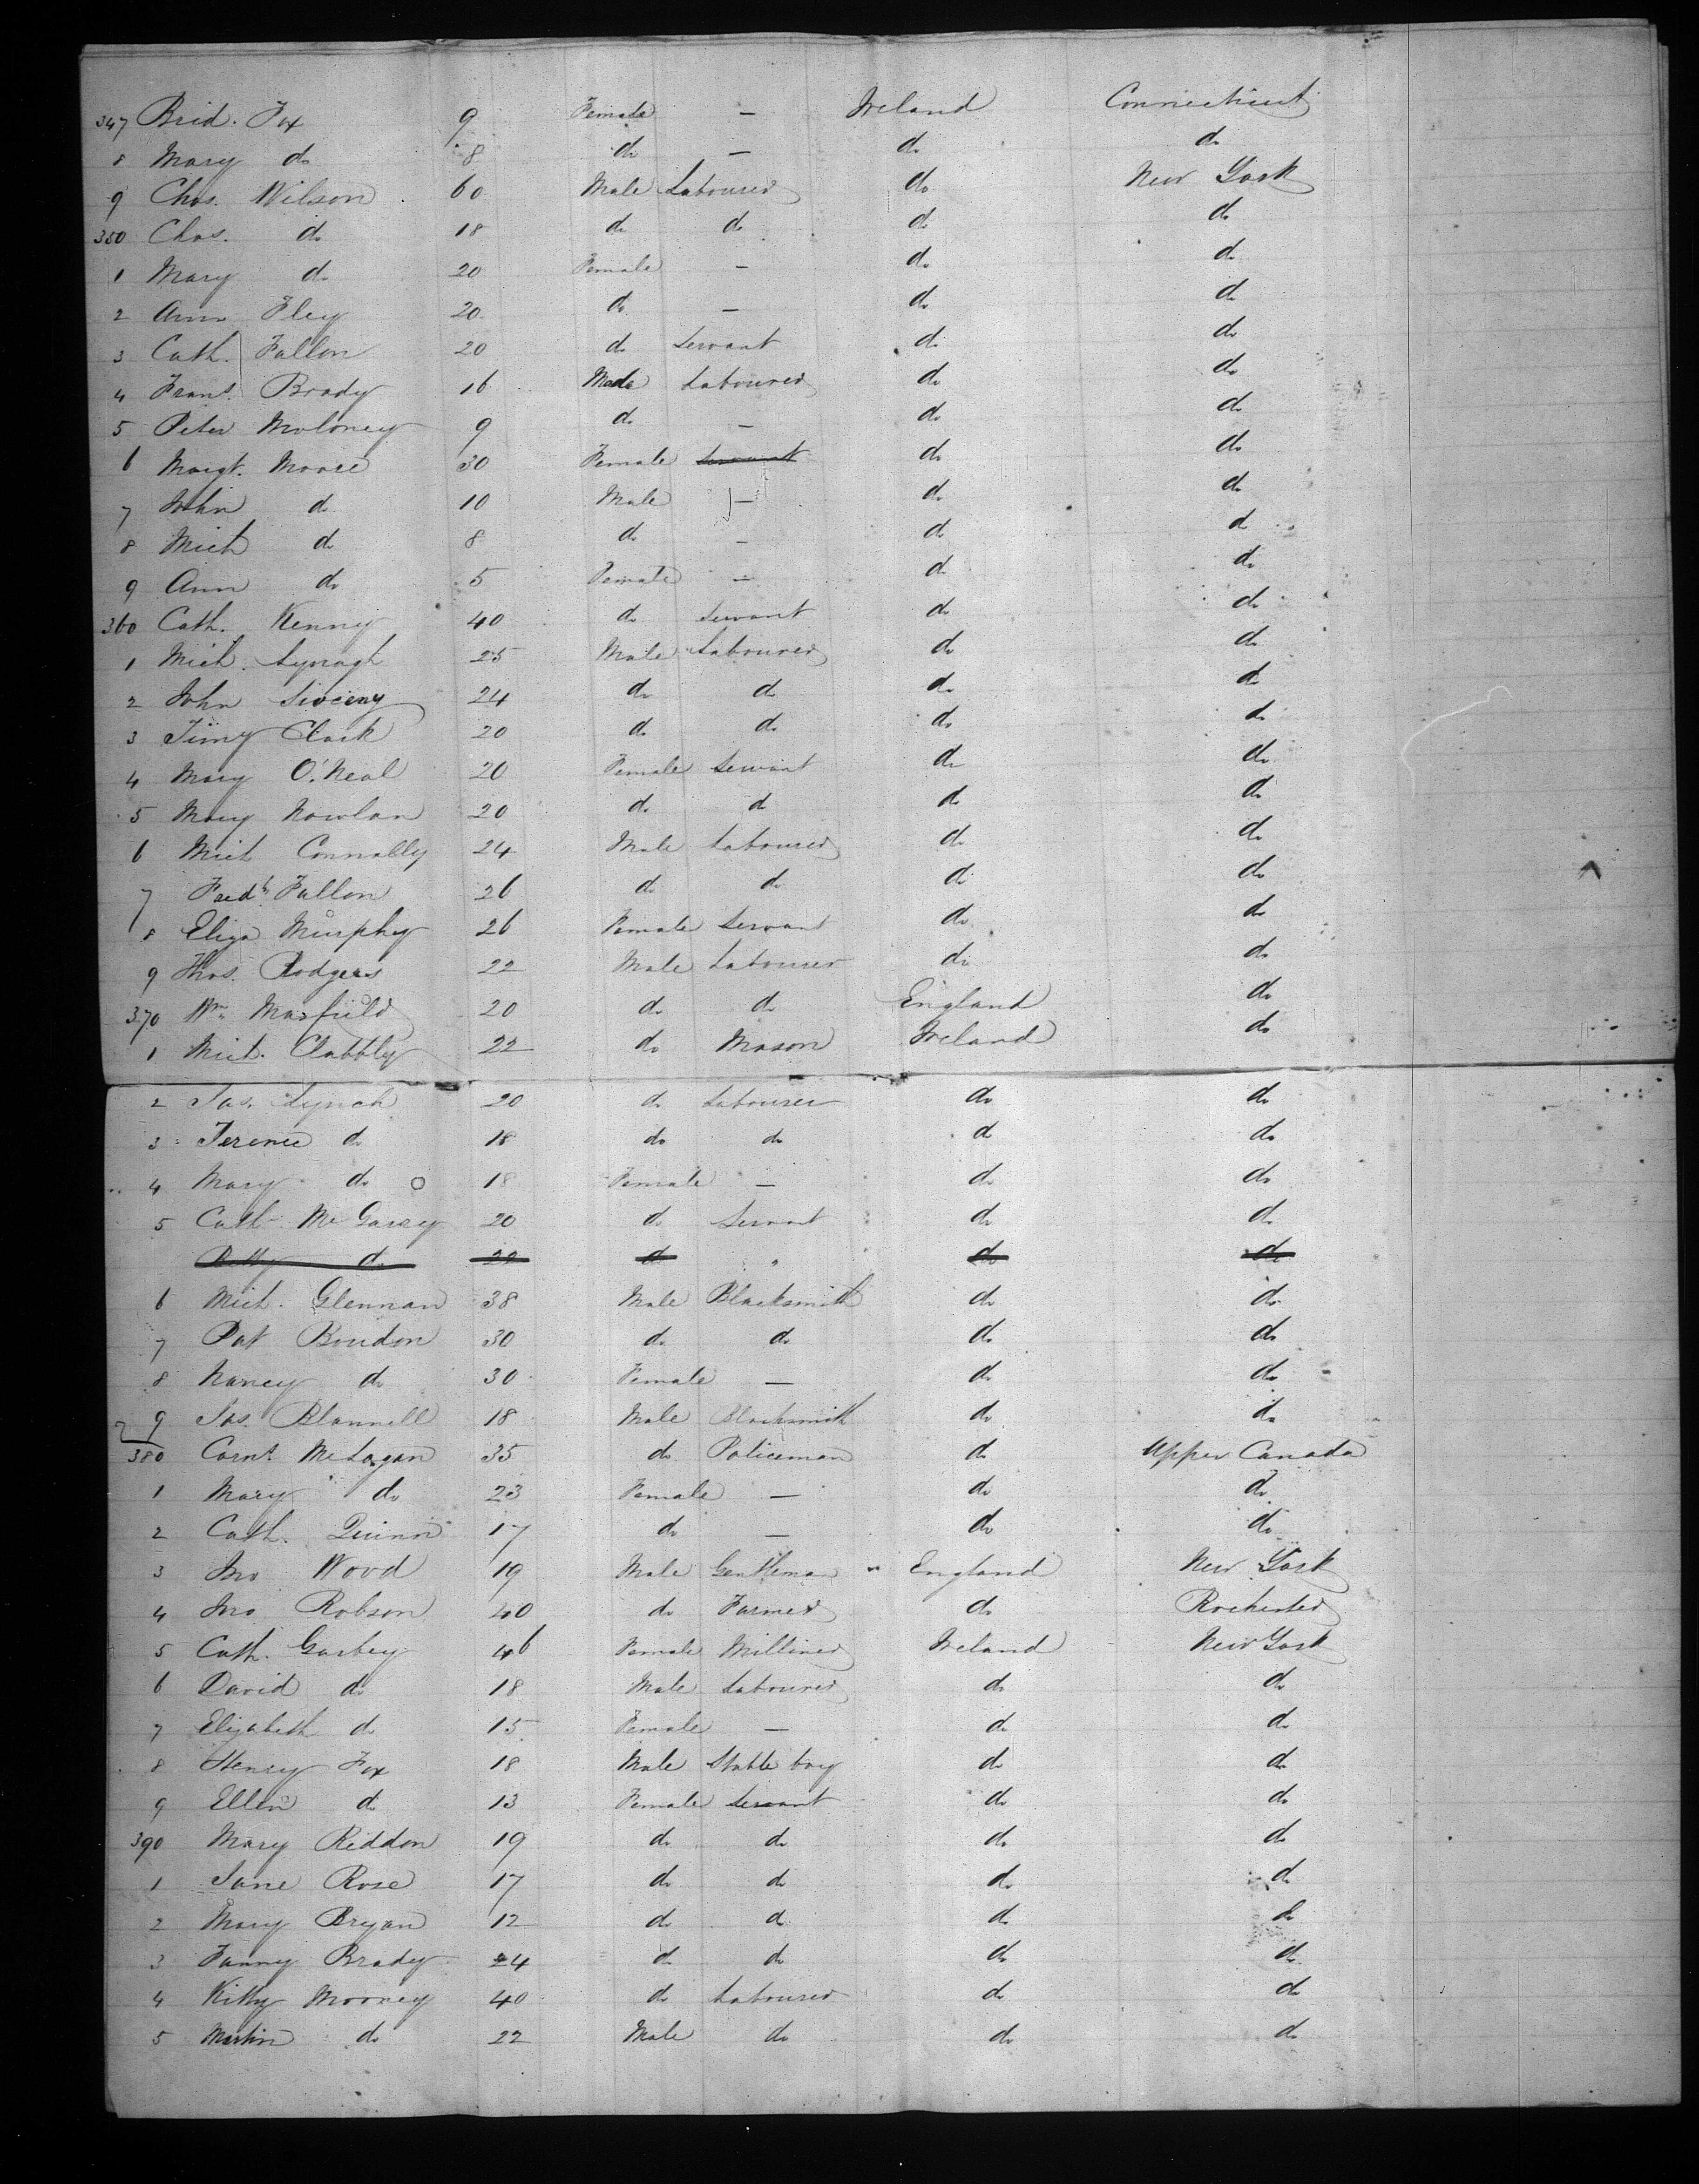 347 Brid. Fox 9 Female — Ireland Connecticut
8 Mary do 8 do — do do
9 Chas. Wilson 60 Male Labourer do New York
350 Chas. do 18 do do do do
1 Mary do 20 Female — do do
2 Ann Fley 20 do — do do
3 Cath. Fallon 20 do Servant do do
4 Frans. Brady 16 Male Labourer do do
5 Peter Moloney 9 do — do do
6 Margt. Moore 30 Female Servant do do
7 John do 10 Male — do do
8 Mich do 8 do — do do
9 Ann do 5 Female — do do
360 Cath. Kenny 40 do Servant do do
1 Mich. Lynagh 25 Male Labourer do do
2 John 24 do do do do
3 Timy Clark 20 do do do do
4 Mary O'Neal 20 Female Servant do do
5 Mary Nowlan 20 do do do do
6 Mich Connolly 24 Male Labourer do do
7 Fredk. Fallon 26 do do do do
8 Eliza Murphy 26 Female Servant do do
9 Thos. Rodgers 22 Male Labourer do do
370 Wm Masfield 20 do do England do
1 Mich. Clabbly 22 do Mason Ireland do
2 Jas. Lynch 20 do Labourer do do
3 Terence do 18 do do do do
4 Mary do 18 Female — do do
5 Cath McGarry 20 do Servant do do
do do do do
6 Mich. Glennan 38 Male Blacksmith do do
7 Pat Boudon 30 do do do do
8 Nancy do 30 Female — do do
9 Jas. Blannell 18 Male Blacksmith do do
380 Corns. McLogan 35 do Policeman do Upper Canada
1 Mary do 23 Female — do do
2 Cath. Quinn 17 do — do do
3 Jno Wood 19 Male Gentleman England New York
4 Jno Robson 40 do Farmer do Rochester
5 Cath. Garbey 46 Female Milliner Ireland New York
6 David do 18 Male Labourer do do
7 Elizabeth do 15 Female — do do
8 Henry Fox 18 Male Stable boy do do
9 Ellen do 13 Female Servant do do
390 Mary Reddon 19 do do do do
1 Jane Rose 17 do do do do
2 Mary Bryan 12 do do do do
3 Fanny Brady 24 do do do do
4 Kitty Mooney 40 do Labourer do do
5 Martin do 22 Male do do do